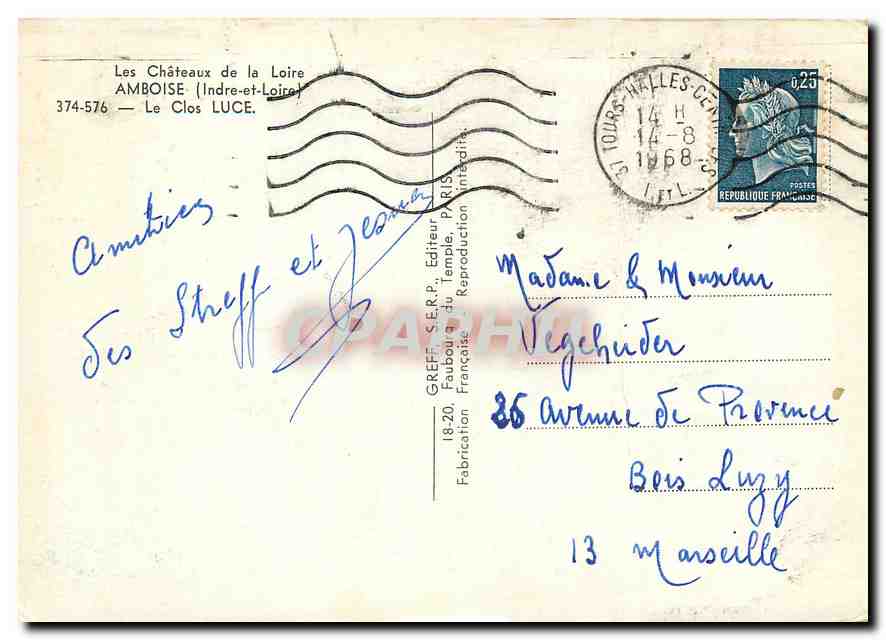 Les Châteaux de la Loire
AMBOISE (Indre-et-Loire)
374-576 — Le Clos LUCE.
37 TOURS-HALLES-CENTR
14 H
14-8
1968
I. ET L.
0,25
POSTES
REPUBLIQUE FRANÇAISE
Amitiés
des Streff et
GREFF, S.E.R.P., Editeur
18-20, Faubourg du Temple, PARIS
Fabrication Française - Reproduction interdite.
CPAPHIL
Madame & Monsieur
Vegeheider
26 Avenue de Provence
Bois Luzy
13 Marseille